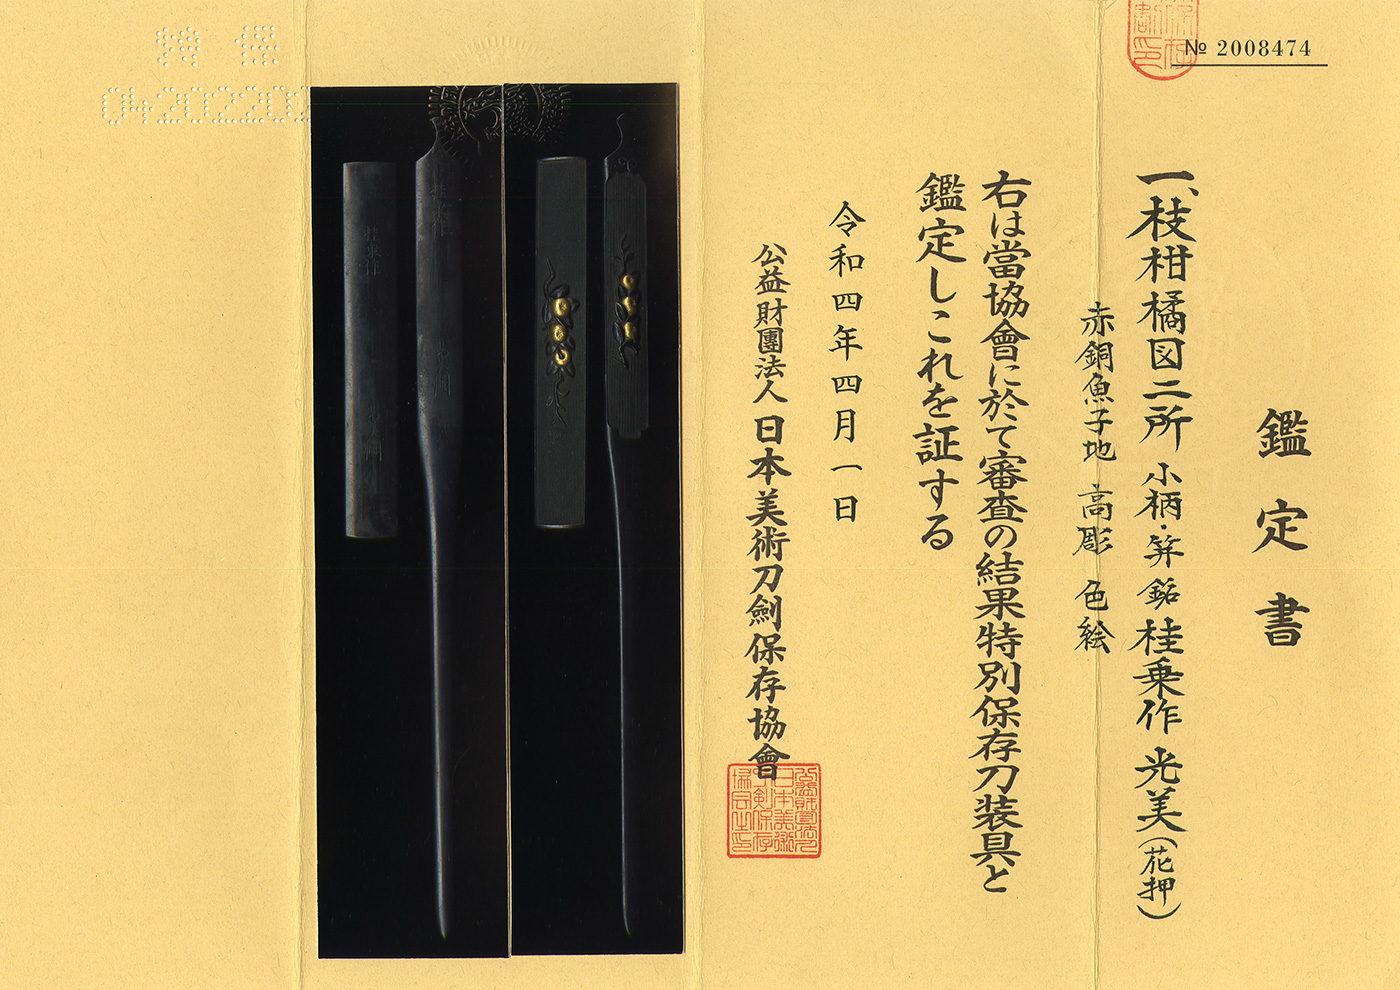 № 2008474
鑑定書
一、枝柑橘図二所 小柄・笄 銘 桂乗作 光美(花押)
赤銅魚子地 高彫 色絵
右は當協會に於て審査の結果特別保存刀装具と
鑑定しこれを証する
令和四年四月一日
公益財團法人 日本美術刀劍保存協會
公益財團法人
日本美術
刀剣保存
協会之印
特保
桂乗作